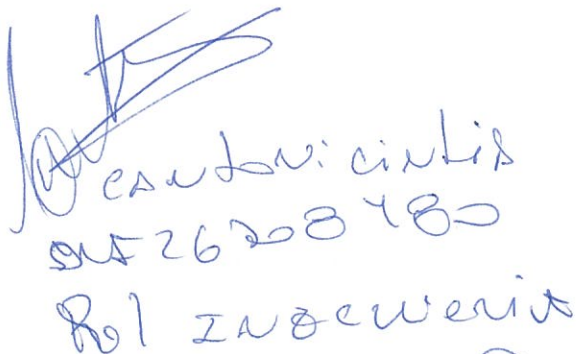 Cantoni Cintia
DNI 26208480
Rol Ingenieria